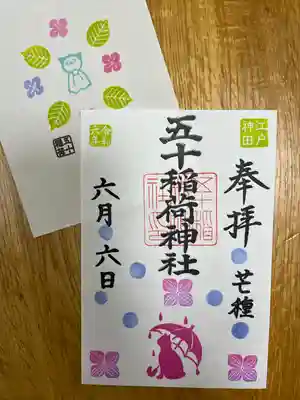 江戸
神田
奉拝
芒種
五十稲荷神社
令和
元年
六月六日
五十
稲荷